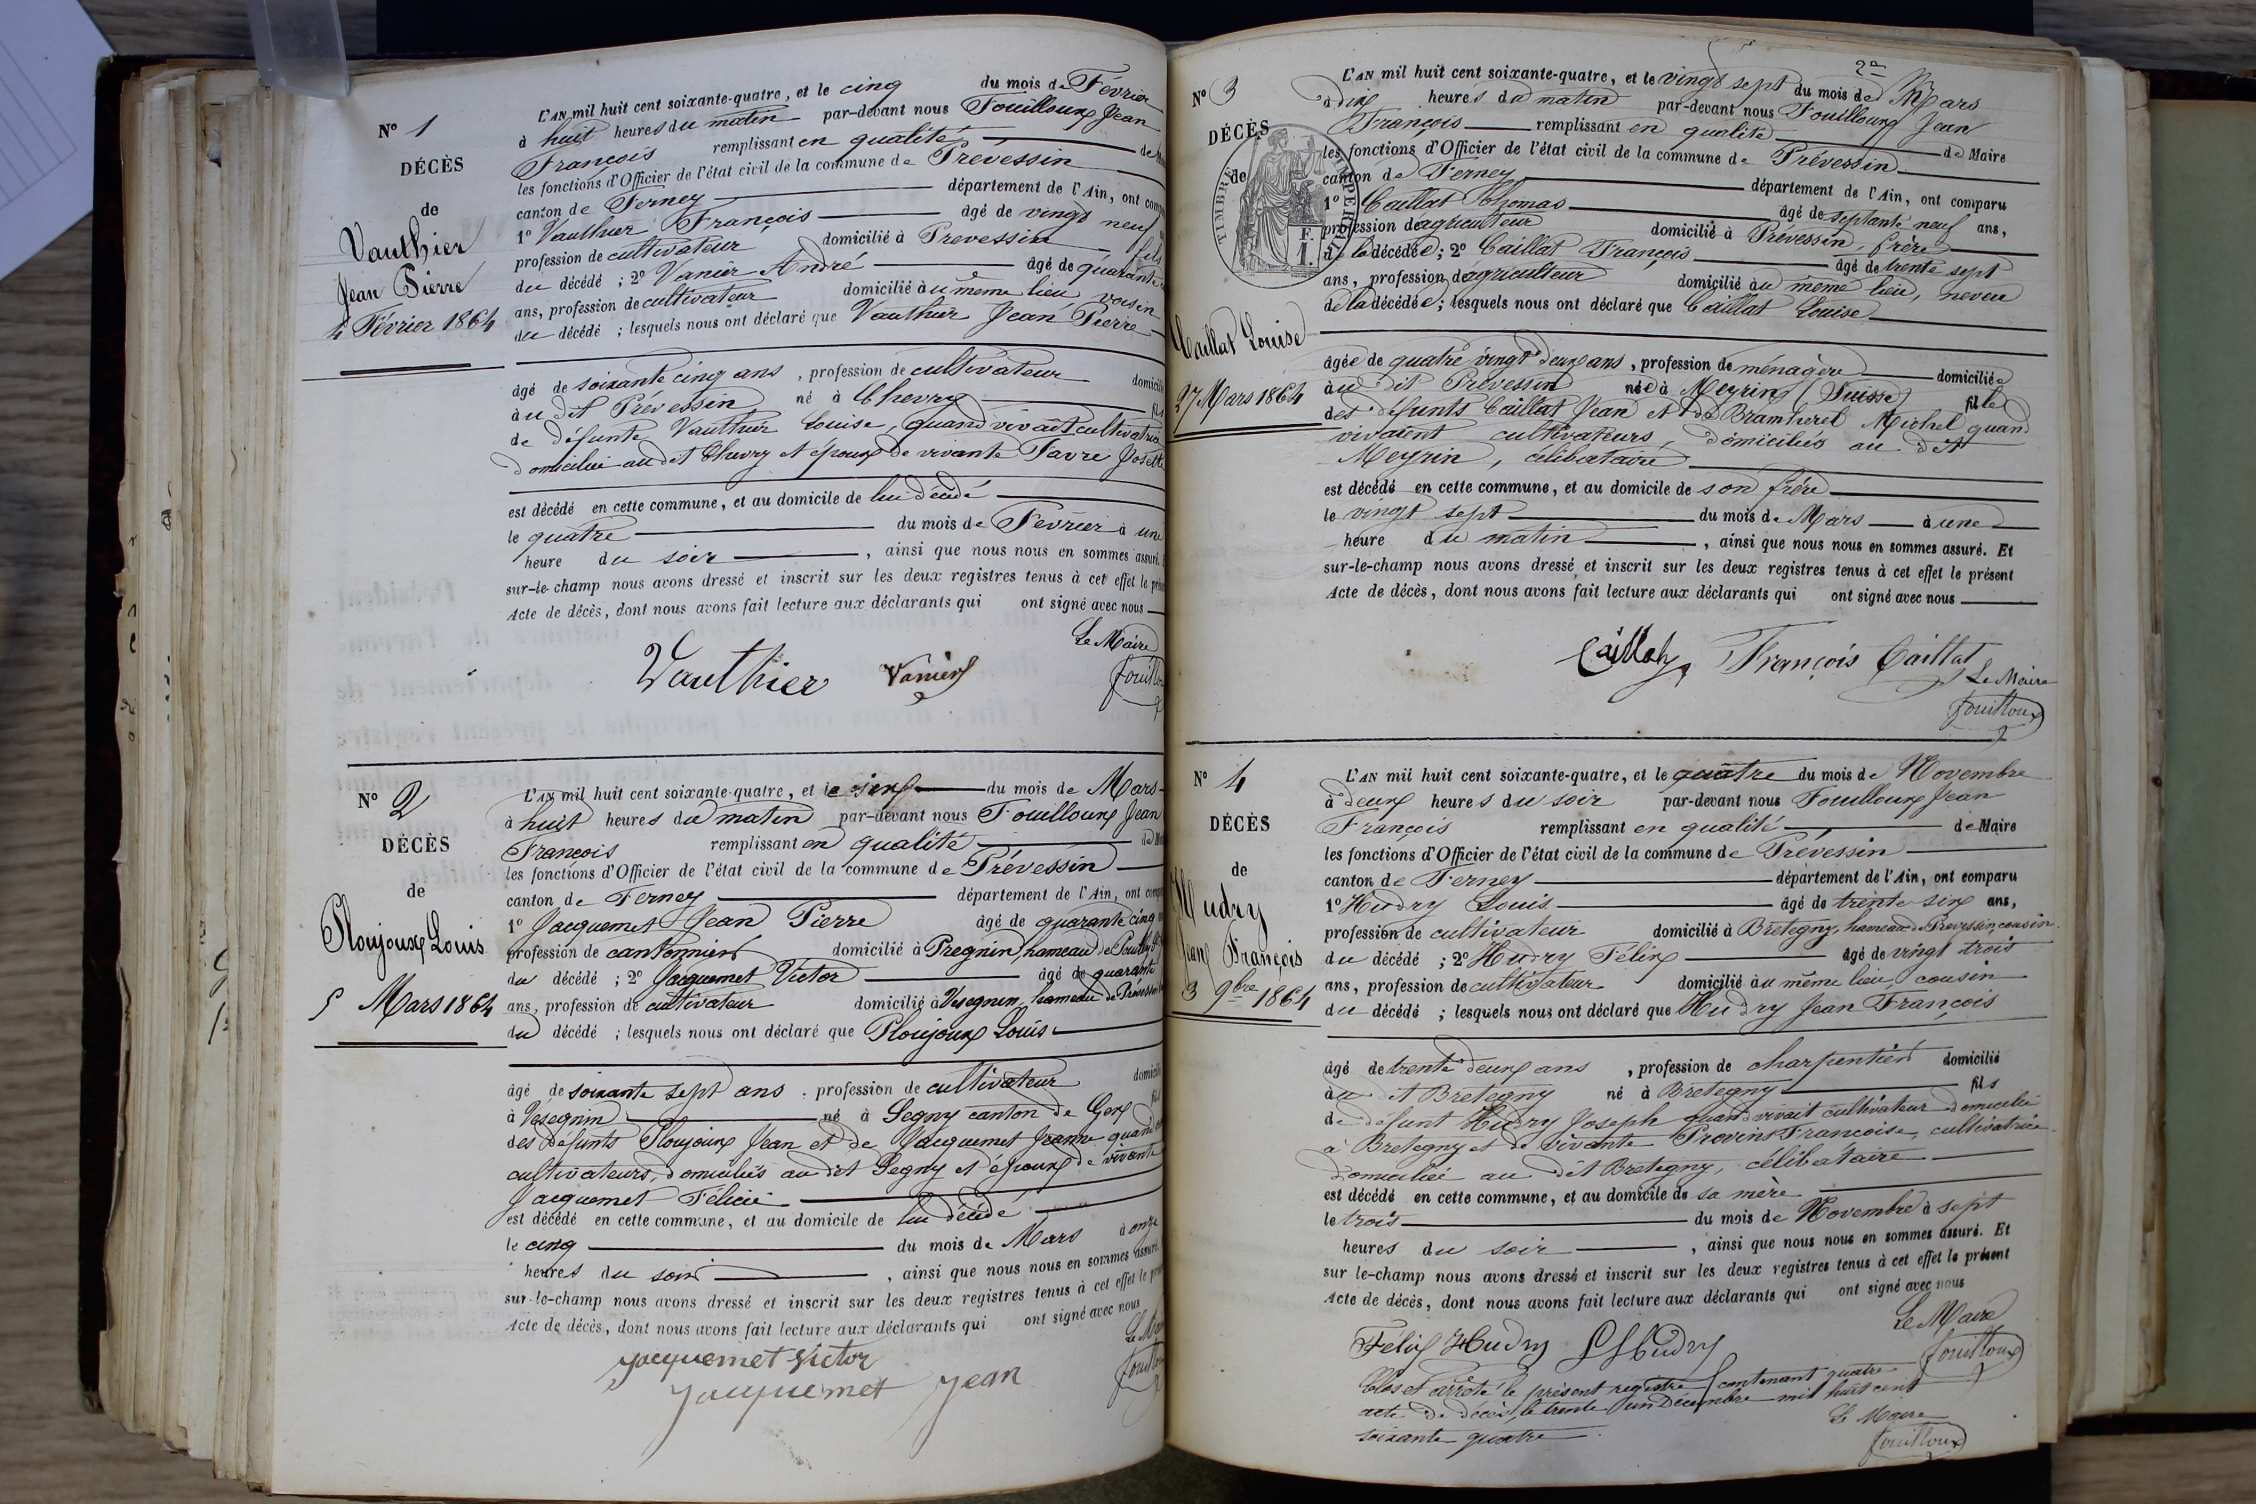 N° 1
DÉCÈS
de
Vauthier
Jean Pierre
4 Février 1864
L'AN mil huit cent soixante-quatre, et le cinq du mois de Février
à huit heures du matin par-devant nous Fouilloux Jean
François remplissant en qualité de
les fonctions d'Officier de l'état civil de la commune de Prévessin
canton de Ferney département de l'Ain, ont
1° Vauthier François âgé de vingt neuf
profession de cultivateur domicilié à Prevessin fils
du décédé ; 2° Vanier André âgé de quarante
ans, profession de cultivateur domicilié au même lieu voisin
du décédé ; lesquels nous ont déclaré que Vauthier Jean Pierre
âgé de soixante cinq ans, profession de cultivateur
au dit Prévessin né à Chevry
de défunte Vauthier Louise, quand vivait cultivatrice
domiciliée au dit Chevry et époux de vivante Favre Josette
est décédé en cette commune, et au domicile de lui décédé
le quatre du mois de Février à une
heure du soir, ainsi que nous nous en sommes assuré.
sur-le-champ nous avons dressé et inscrit sur les deux registres tenus à cet effet le
Acte de décès, dont nous avons fait lecture aux déclarants qui ont signé avec nous
Le Maire
Vauthier Vanier
N° 2
DÉCÈS
de
Ploujoux Louis
5 Mars 1864
L'AN mil huit cent soixante-quatre, et le six du mois de Mars
à huit heures du matin par-devant nous Fouilloux Jean
François remplissant en qualité de
les fonctions d'Officier de l'état civil de la commune de Prévessin
canton de Ferney département de l'Ain, ont
1° Jacquemet Jean Pierre âgé de quarante cinq
profession de cantonnier domicilié à Pregnin, hameau de
du décédé ; 2° Jacquemet Victor âgé de quarante
ans, profession de cultivateur domicilié à Vesegnin, hameau de
du décédé ; lesquels nous ont déclaré que Ploujoux Louis
âgé de soixante sept ans, profession de cultivateur
à Vésegnin né à Segny canton de Gex
des défunts Ploujoux Jean et de Jacquemet Jeanne quand
cultivateurs, domiciliés au dit Segny et époux de vivante
Jacquemet Félicie
est décédé en cette commune, et au domicile de lui décédé
le cinq du mois de Mars à onze
heures du soir, ainsi que nous nous en sommes assuré.
sur-le-champ nous avons dressé et inscrit sur les deux registres tenus à cet effet le
Acte de décès, dont nous avons fait lecture aux déclarants qui ont signé avec nous
Jacquemet Victor
Jacquemet Jean
N° 3
DÉCÈS
de
TIMBRE IMPERIAL
Caillat Louise
27 Mars 1864
L'AN mil huit cent soixante-quatre, et le vingt sept du mois de Mars
à dix heures du matin par-devant nous Fouilloux Jean
François remplissant en qualité de Maire
les fonctions d'Officier de l'état civil de la commune de Prévessin
canton de Ferney département de l'Ain, ont comparu
1° Caillat Thomas âgé de septante neuf ans,
profession d'agriculteur domicilié à Prévessin, frère
de la décédée ; 2° Caillat François âgé de trente sept
ans, profession d'agriculteur domicilié au même lieu, neveu
de la décédée ; lesquels nous ont déclaré que Caillat Louise
âgée de quatre vingt deux ans, profession de ménagère domiciliée
au dit Prévessin née à Meyrin (Suisse) fille
des défunts Caillat Jean et de Michel quand
vivaient cultivateurs, domiciliés au dit
Meyrin, célibataire
est décédé en cette commune, et au domicile de son frère
le vingt sept du mois de Mars à une
heure du matin, ainsi que nous nous en sommes assuré. Et
sur-le-champ nous avons dressé et inscrit sur les deux registres tenus à cet effet le présent
Acte de décès, dont nous avons fait lecture aux déclarants qui ont signé avec nous
François Caillat
Le Maire
Fouilloux
N° 4
DÉCÈS
de
Hudry
Jean François
3 9bre 1864
L'AN mil huit cent soixante-quatre, et le quatre du mois de Novembre
à deux heures du soir par-devant nous Fouilloux Jean
François remplissant en qualité de Maire
les fonctions d'Officier de l'état civil de la commune de Prévessin
canton de Ferney département de l'Ain, ont comparu
1° Hudry Louis âgé de trente six ans,
profession de cultivateur domicilié à Bretegny, hameau de Prevessin, cousin
du décédé ; 2° Hudry Félix âgé de vingt trois
ans, profession de cultivateur domicilié au même lieu, cousin
du décédé ; lesquels nous ont déclaré que Hudry Jean François
âgé de trente deux ans, profession de charpentier domicilié
au dit Bretegny né à Bretegny fils
de défunt Hudry Joseph quand vivait cultivateur domicilié
à Bretegny et de vivante Provins Françoise, cultivatrice
domiciliée au dit Bretegny, célibataire
est décédé en cette commune, et au domicile de sa mère
le trois du mois de Novembre à sept
heures du soir, ainsi que nous nous en sommes assuré. Et
sur le-champ nous avons dressé et inscrit sur les deux registres tenus à cet effet le présent
Acte de décès, dont nous avons fait lecture aux déclarants qui ont signé avec nous
Le Maire
Félix Hudry L Hudry Fouilloux
Clos et arrêté le présent registre contenant quatre
acte de décès, le trente un Décembre mil huit cent
soixante quatre
Le Maire
Fouilloux